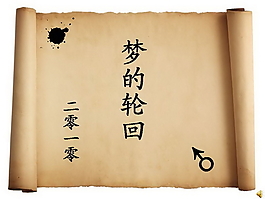 梦的轮回
二零一零